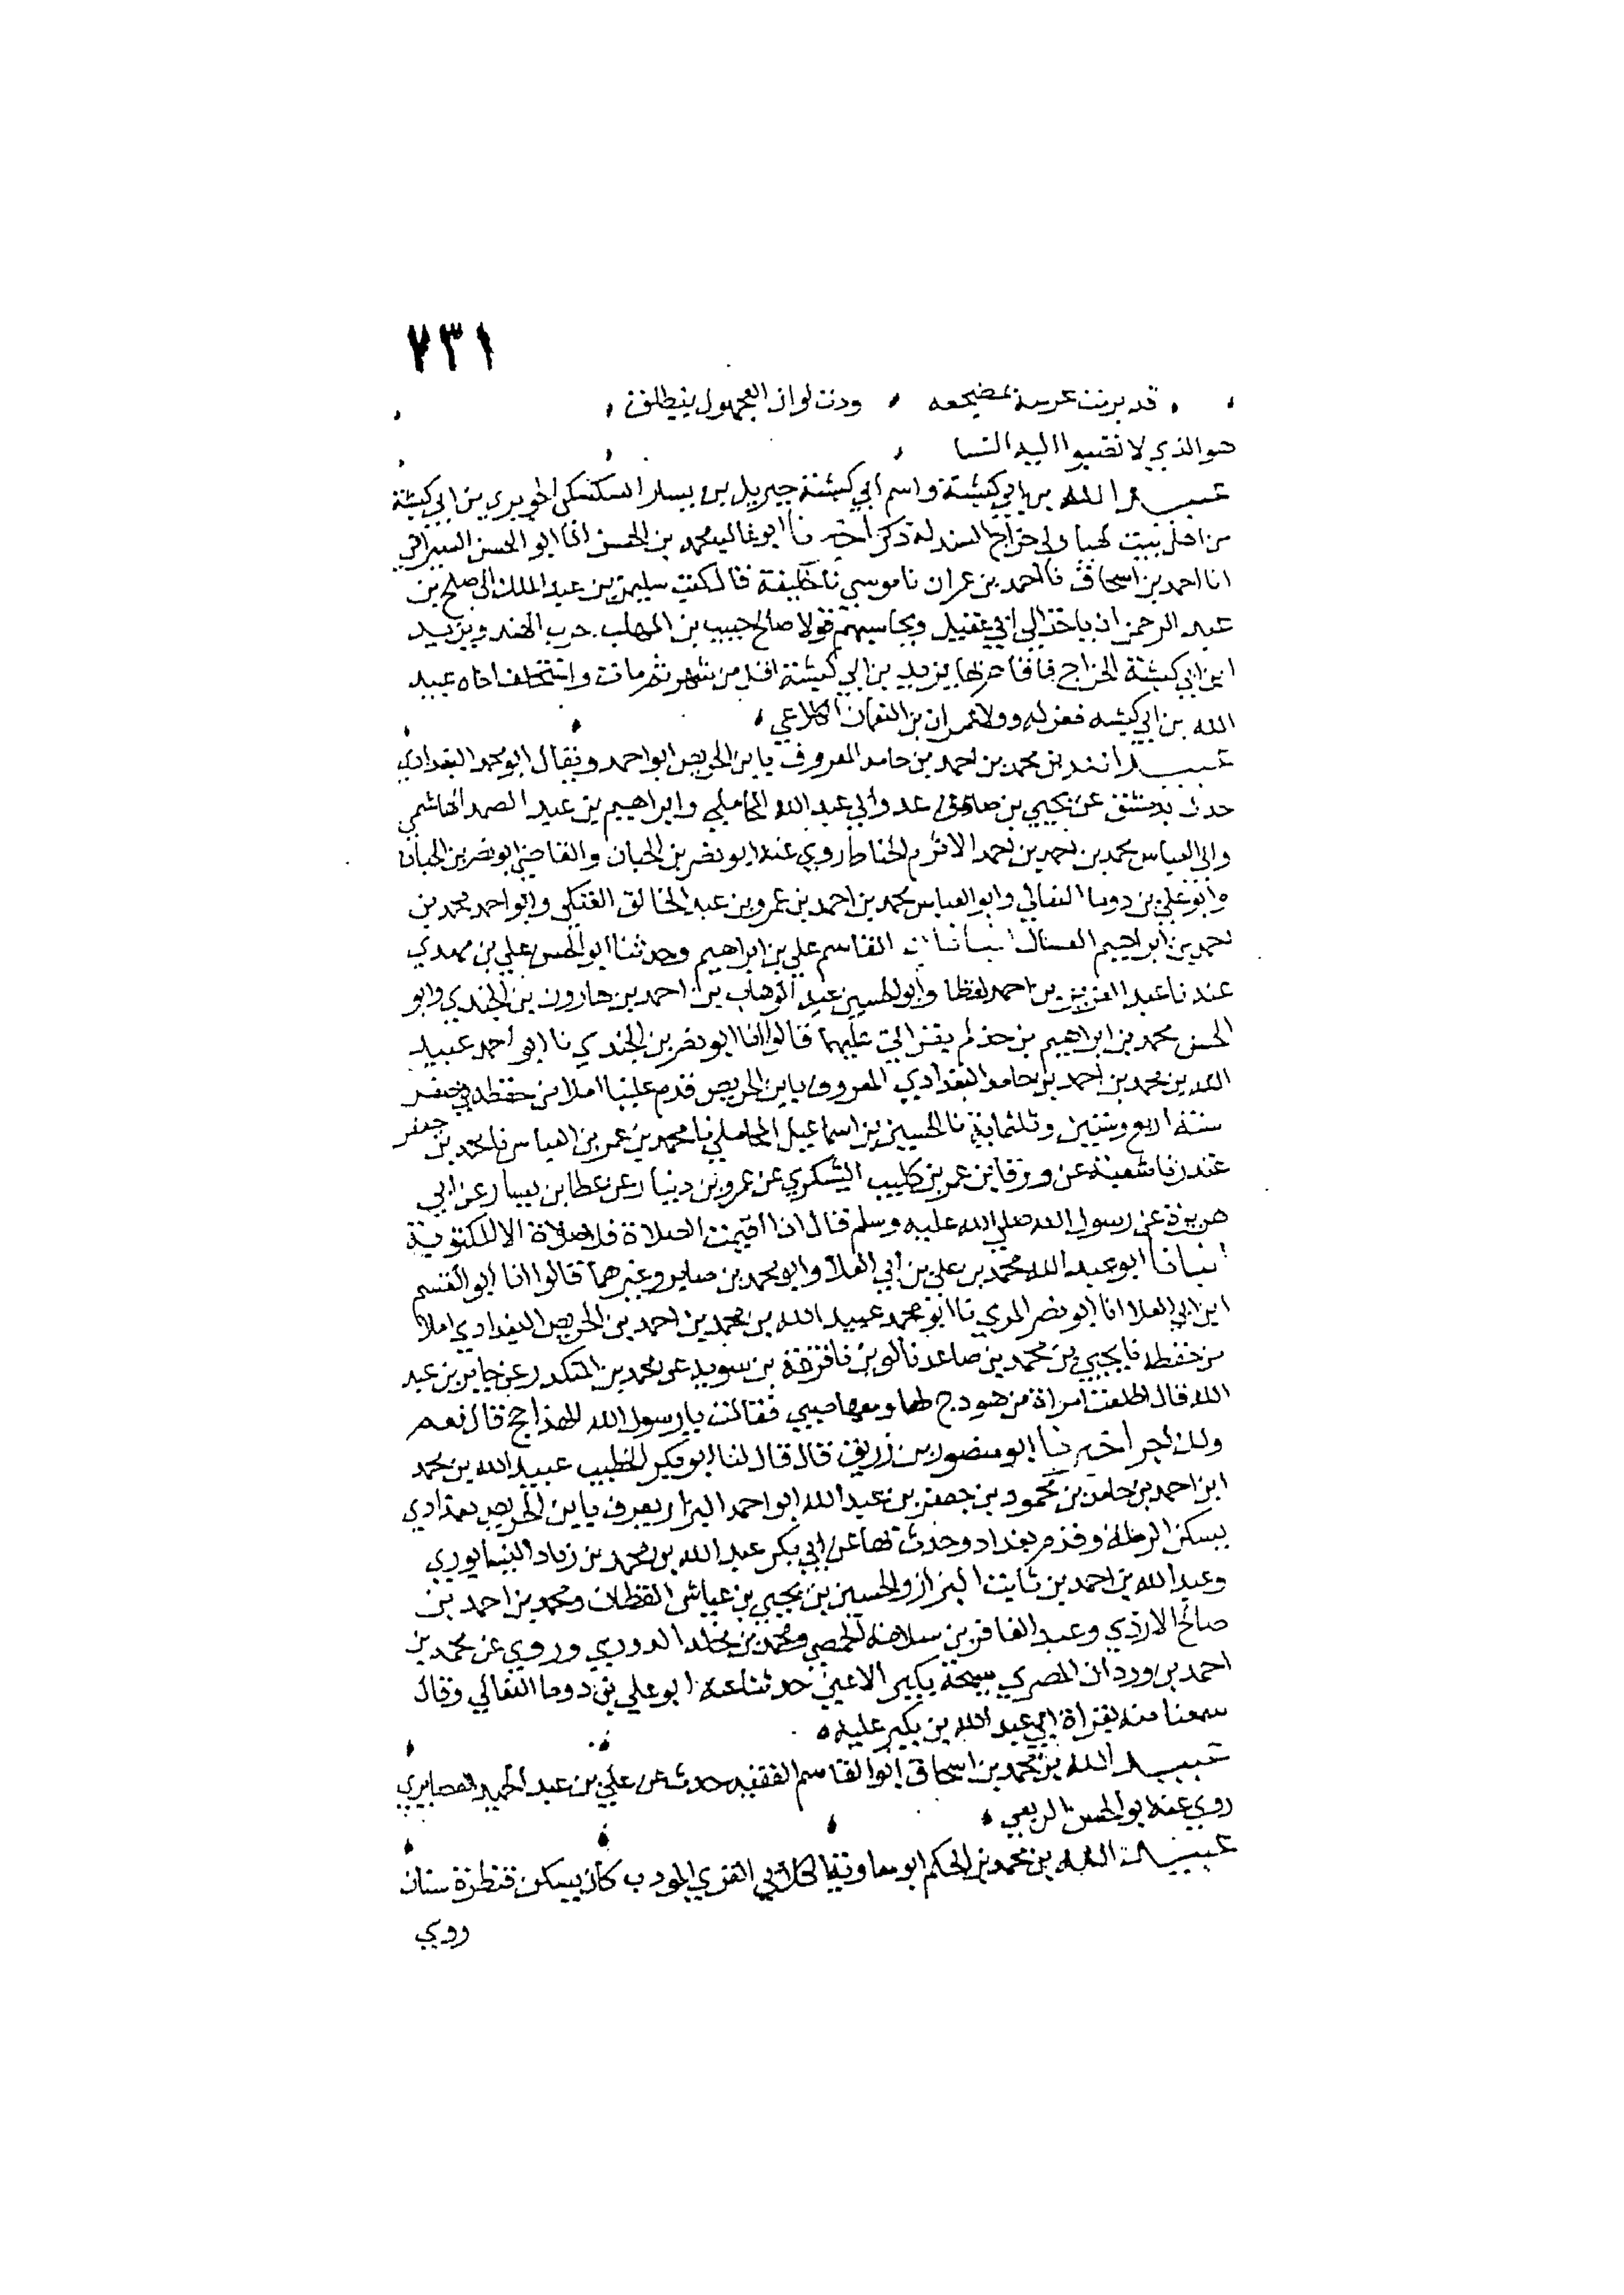 ٧٣١
قد برنت عرسه بمضجعه ودت لو ان الفحول ينطلقن
هو الذي لا تقنبوا اليه النسا
عبيد الله بن ابي كبشة واسم ابي كبشة جبريل بن يسار السكسكي اخو يزيد بن ابي كبشة
من اهل بيت لهيا ولي خراج السند له ذكر اخبرنا ابو غالب محمد بن الحسن انا ابو الحسن السيرافي
انا احمد بن اسحاق نا احمد بن عمران نا موسى نا خليفة قال كتب سليمن بن عبد الملك الى صلح بن
عبد الرحمن ان ياخذ الي ابي عقيل ويحاسبهم فولا صالح حبيب بن المهلب حرب الهند ويزيد
ابن ابي كبشة الخراج فاقام بها يزيد بن ابي كبشة اقل من شهر ثم مات واستخلف اخاه عبيد
الله بن ابي كبشه فعزله وولا عمران بن النعمان الكلاعي
عبيد الله بن محمد بن احمد بن حامد المعروف بابن الحريص ابو احمد ويقال ابو محمد البغدادي
حدث بدمشق عن يحيى بن صاعد وابي عبد الله المحاملي وابراهيم بن عبد الصمد الهاشمي
وابي العباس محمد بن احمد بن احمد الاثرم الخياط روى عنه ابو نصر بن الجبان والقاضي ابو نصر بن الجبان
وابو علي بن دوما النعالي وابو العباس محمد بن احمد بن عمرو بن عبد الخالق العتكي وابو احمد محمد بن
احمد بن ابراهيم الغسال انبانا القاسم علي بن ابراهيم وحدثنا ابو الحسن علي بن مهدي
عنه نا عبد العزيز بن احمد لفظا وابو الحسين عبد الوهاب بن احمد بن هارون بن الجندي وابو
الحسن محمد بن ابراهيم بن حذلم بقراتي عليهما قالوا انا ابو نصر بن الجندي نا ابو احمد عبيد
الله بن محمد بن احمد بن حامد البغدادي المعروف بابن الحريص قدم علينا املا من حفظه في صفر
سنة اربع وستين وثلثماية نا الحسين بن اسماعيل المحاملي نا محمد بن عمر بن العباس نا محمد بن جعفر
غندر نا شعبة عن ورقا بن عمر بن كليب اليشكري عن عمرو بن دينار عن عطا بن يسار عن ابي
هريرة عن رسول الله صلى الله عليه وسلم قال اذا اقيمت الصلاة فلا صلاة الا المكتوبة
انبانا ابو عبد الله محمد بن علي بن ابي العلا وابو محمد بن صابر وغيرهما قالوا انا ابو القسم
ابن ابي العلا انا ابو نصر المري نا ابو محمد عبيد الله بن محمد بن احمد بن الحريص البغدادي املا
من حفظه نا يحيى بن محمد بن صاعد نا لوين نا قزعة بن سويد عن محمد بن المنكدر عن جابر بن عبد
الله قال اطلعت امراة من هودج لها ومعها صبي فقالت يا رسول الله الهذا حج قال نعم
ولك اجر اخبرنا ابو منصور بن زريق قال قال لنا ابو بكر الخطيب عبيد الله بن محمد
ابن احمد بن حامد بن محمود بن جعفر بن عبد الله ابو احمد البزاز يعرف بابن الحريص بغدادي
يسكن الرملة وقدم بغداد وحدث بها عن ابي بكر عبد الله بن محمد بن زياد النيسابوري
وعبد الله بن احمد بن ثابت البزاز والحسين بن يحيى بن عياش القطان ومحمد بن احمد بن
صالح الازدي وعبد الغافر بن سلامة الحمصي ومحمد بن مخلد الدوري وروى عن محمد بن
احمد بن وردان المصري نسخة بكير الاعين حدثنا عنه ابو علي بن دوما النعالي وقال
سمعنا منه بقراة ابي عبد الله بن بكير عليه
عبيد الله بن محمد بن اسحاق ابو القاسم الفقيه حدث عن علي بن عبد الحميد الغضايري
روى عنه ابو الحسن الربعي
عبيد الله بن محمد بن الحكم ابو معاوية الكلابي المقري المودب كان يسكن قنطرة سنان
روى